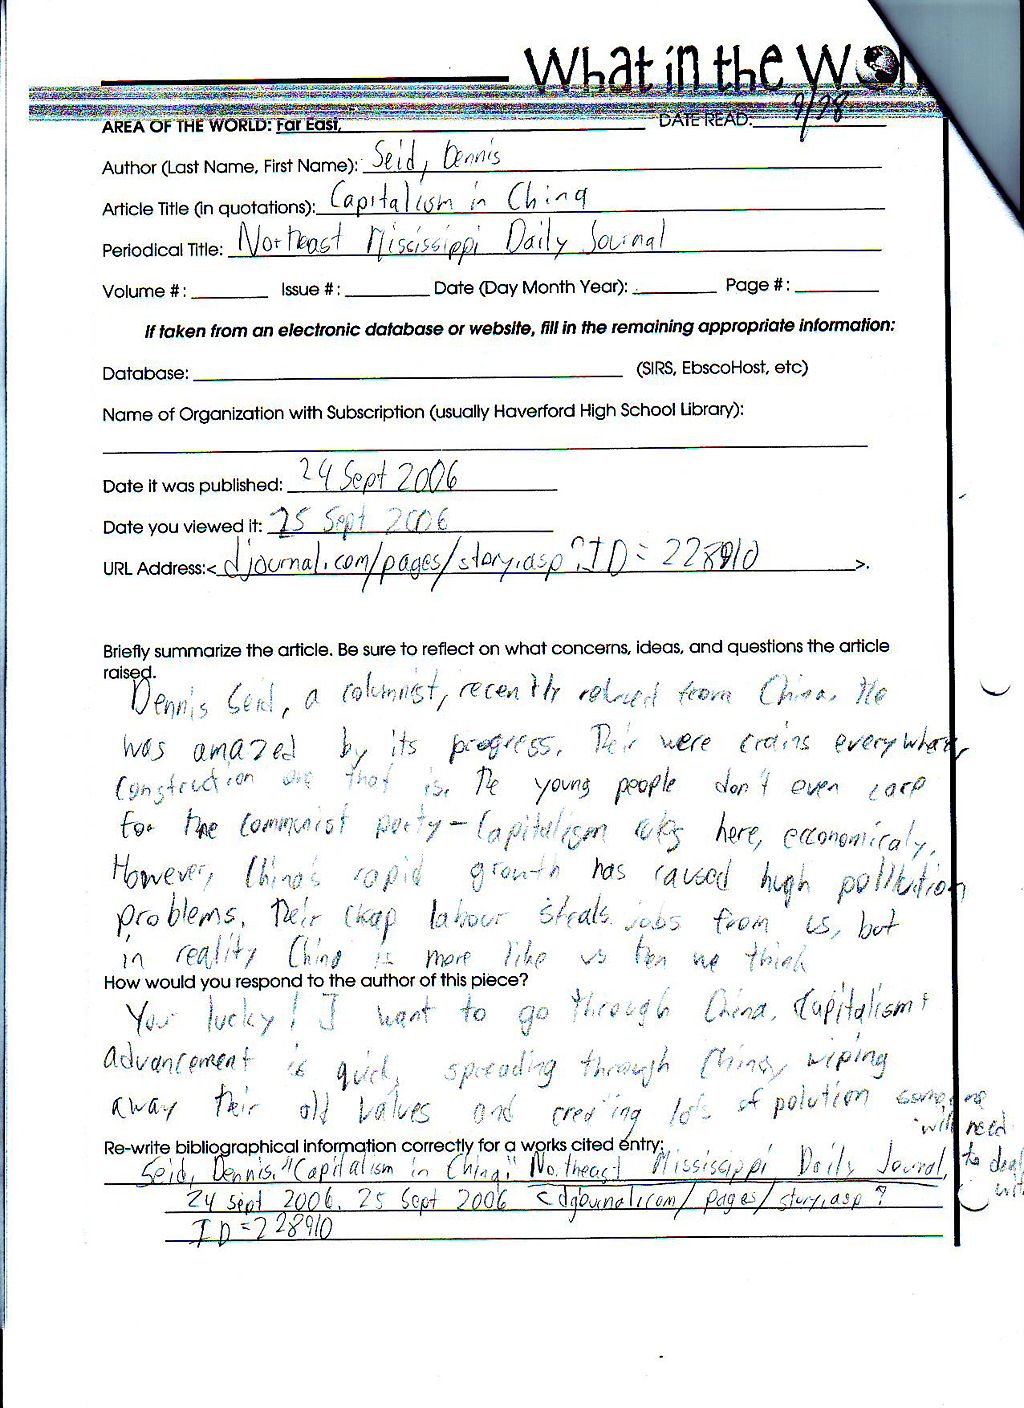 What in the Wor
AREA OF THE WORLD: Far East, DATE READ: 9/28
Author (Last Name, First Name): Seid, Dennis
Article Title (in quotations): Capitalism in China
Periodical Title: Northeast Mississippi Daily Journal
Volume #: Issue #: Date (Day Month Year): Page #:
If taken from an electronic database or website, fill in the remaining appropriate information:
Database: (SIRS, EbscoHost, etc)
Name of Organization with Subscription (usually Haverford High School Library):
Date it was published: 24 Sept 2006
Date you viewed it: 25 Sept 2006
URL Address:< djournal.com/pages/story.asp?ID=228910 >.
Briefly summarize the article. Be sure to reflect on what concerns, ideas, and questions the article
raised.
Dennis Seid, a columnist, recently from China. He
was amazed by its progress. Their were crains everywhere,
construction that is. The young people don't even care
for the communist party - Capitalism here, economicaly.
However, China's rapid growth has caused high pollution
problems. Their cheap labour steals jobs from us, but
in reality China is more like us then we think
How would you respond to the author of this piece?
Your lucky! I want to go through China. Capitalism +
advancement is quick spreading through China, wiping
away their old values and creating lots of polution someone
will need
to deal
with
Re-write bibliographical information correctly for a works cited entry:
Seid, Dennis. "Capitalism in China." Northeast Mississippi Daily Journal,
24 Sept 2006. 25 Sept 2006 <djournal.com/pages/story.asp?
ID=228910